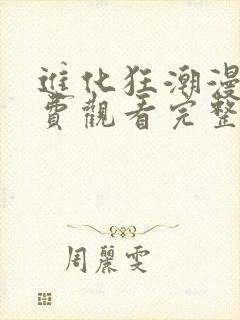 進化狂潮漫
費觀看完整
周麗雯